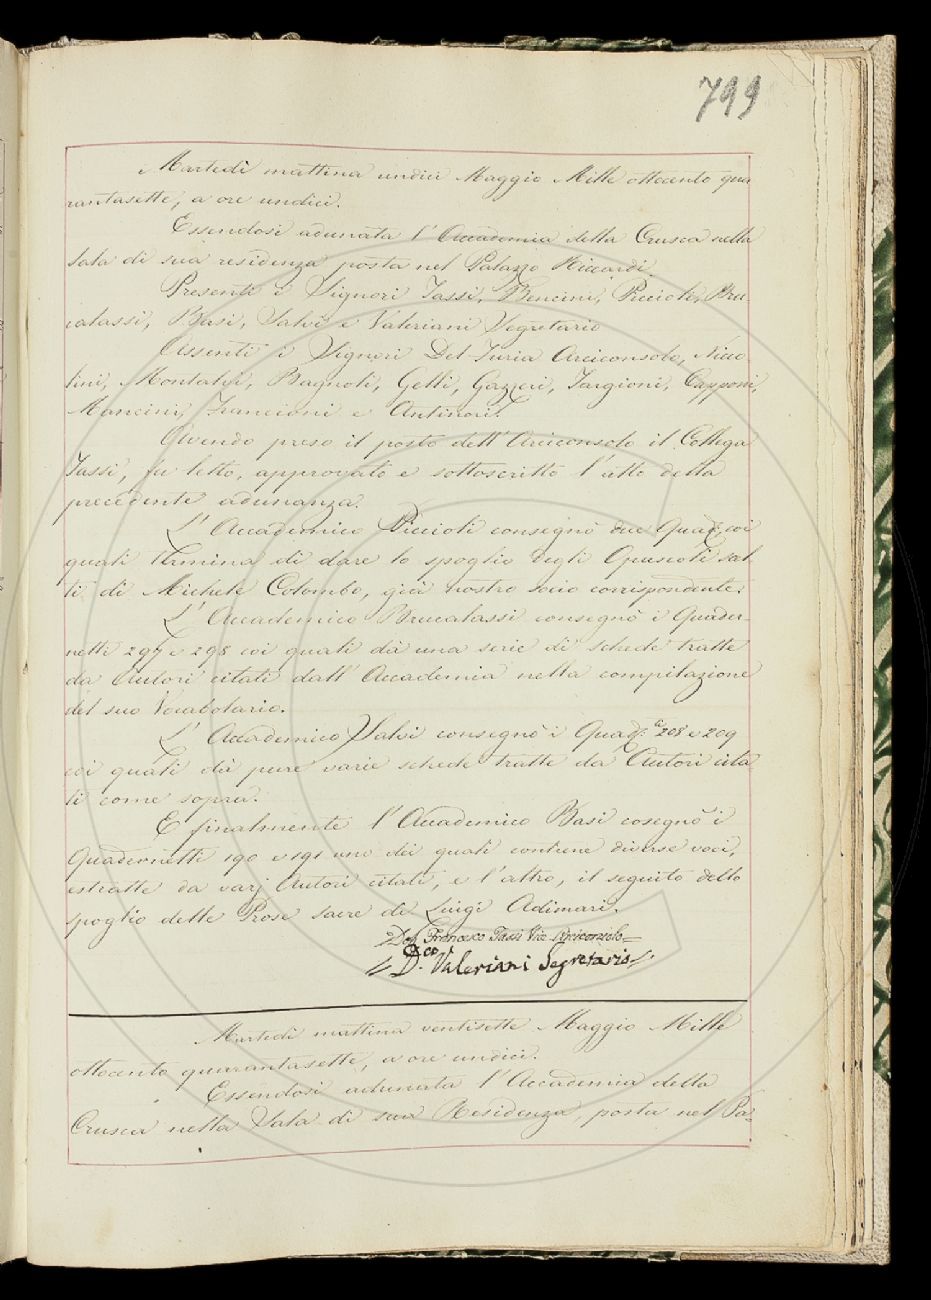 799
Martedì mattina undici Maggio Mille ottocento qua
rantasette, a ore undici.
Essendosi adunata l'Accademia della Crusca nella
Sala di sua residenza posta nel Palazzo Riccardi.
Presenti i Signori Tassi, Bencini, Piccioli, Bru
calassi, Basi, Salvi e Valeriani Segretario
Assenti i Signori Del Furia Arciconsolo, Nicco
lini, Montalvi, Bagnoli, Gelli, Gazzeri, Targioni, Capponi,
Mancini, Francioni e Antinori.
Avendo preso il posto dell'Arciconsolo il Collega
Tassi, fu letto, approvato e sottoscritto l'atto della
precedente adunanza.
L'Accademico Piccioli consegnò due Quad. coi
quali termina di dare lo spoglio degli Opuscoli scel
ti di Michele Colombo, già nostro socio corrispondente.
L'Accademico Brucalassi consegnò i Quader-
netti 297 e 298 coi quali dà una serie di schede tratte
da Autori citati dall'Accademia nella compilazione
del suo Vocabolario.
L'Accademico Salvi consegnò i Quad. 208 e 209
coi quali dà pure varie schede tratte da Autori cita-
ti come sopra.
E finalmente l'Accademico Basi cosegnò i
Quadernetti 190 e 191 uno dei quali contiene diverse voci,
estratte da varj Autori citati, e l'altro, il seguito dello
spoglio delle Prose sacre di Luigi Adimari.
Francesco Tassi Vice-Arciconsolo
D. Valeriani Segretario
Martedì mattina ventisette Maggio Mille
ottocento quarantasette, a ore undici.
Essendosi adunata l'Accademia della
Crusca nella Sala di sua Residenza, posta nel Pa-